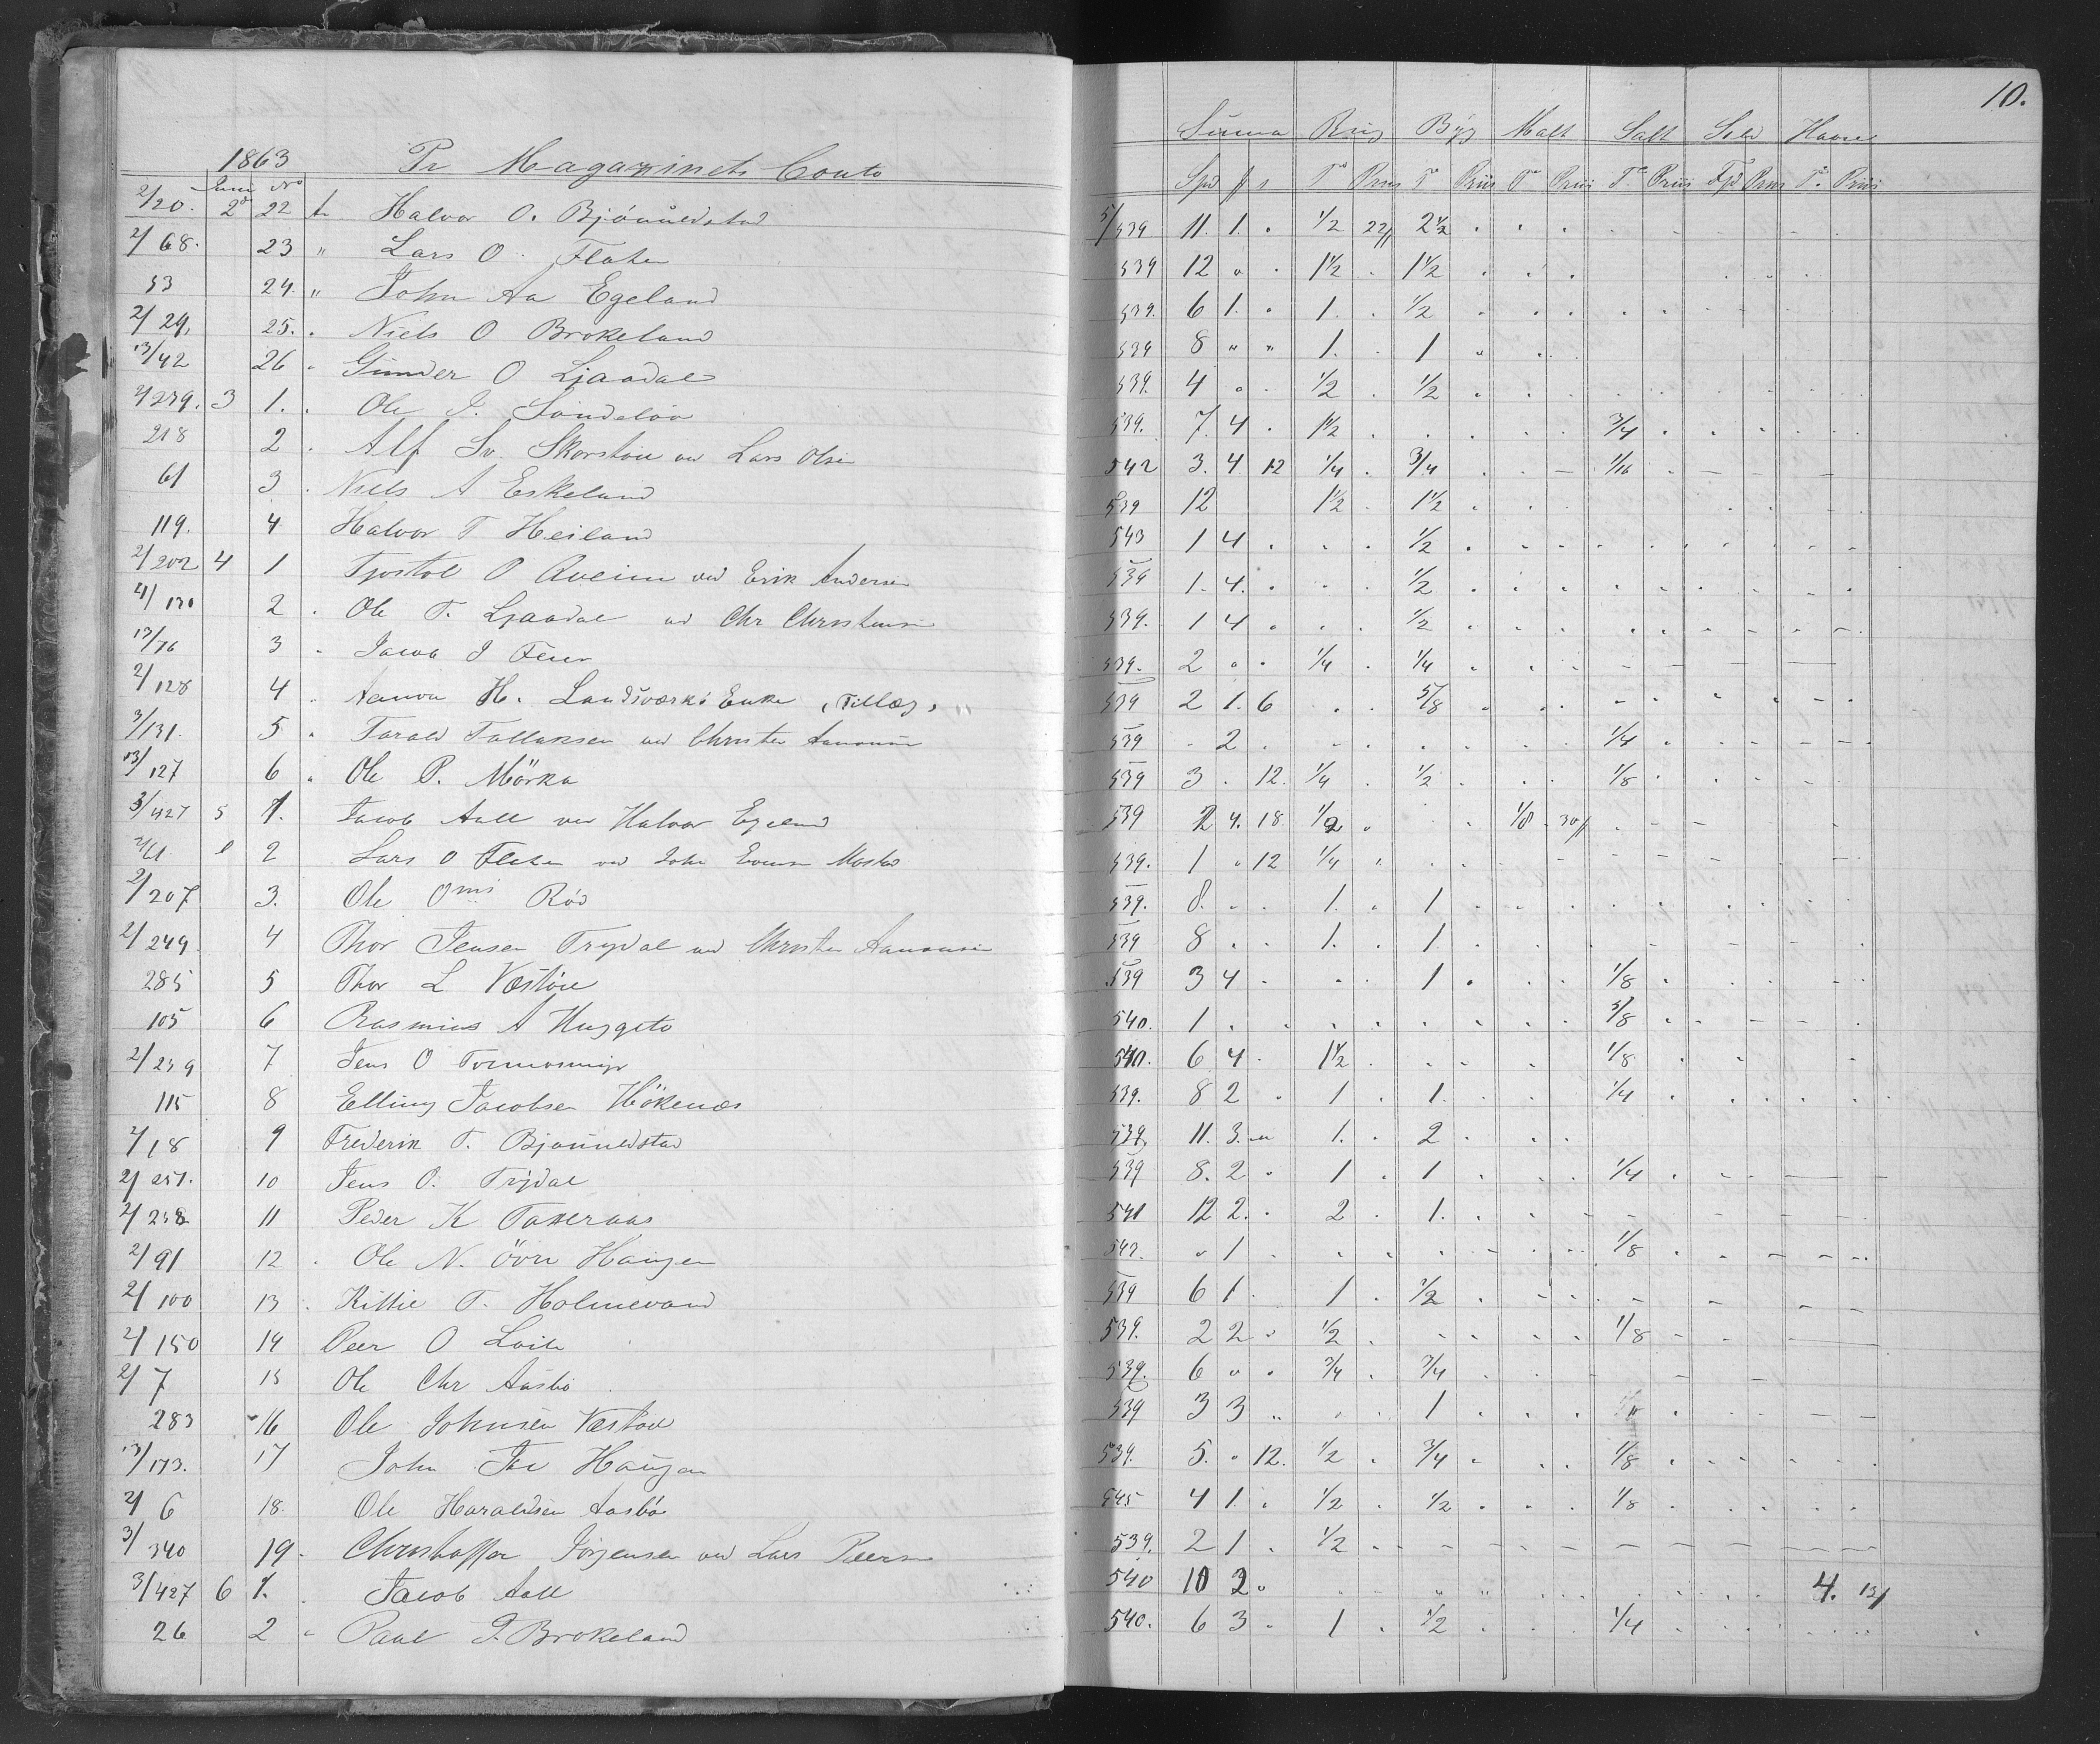 10.
1863 Pr Magazinets Conto Summa Rug Byg Malt Salt Sild Havre
Juni No Spd ß s Td Priis Td Priis Td Priis Td Priis Priis Td Priis
2/20. 2 22 Halvor O. Bjönnildstad 5/539 11. 1. 1/2 22ß 2 1/2
2/68. 23 " Lars O. Flaten 539 12 " 1 1/2 1 1/2
53 24. " John Aa Egeland 539. 6 1. 1. 1/2
2/29, 25. Niels O Brokeland 539 8 " " 1. 1
13/42 26 Gunder O Ljaadal 539. 4 " 1/2 1/2
2/239. 3 1. Ole J. Söndelöv 539. 7. 4 1 1/2 3/4
218 2 Alf Sv. Skorstöu ved Lars Olsen 542 3. 4 12 1/4 3/4 1/16
61 3 Niels A Eskeland 539 12 1 1/2 1 1/2
119. 4 Halvor T Heiland 543 1 4 1/2
2/202 4 1 Tjostol O Aveim ved Erik Andersen 539 1. 4. 1/2
4/130 2 Ole T. Ljaadal ved Chr Christensen 539. 1 4 1/2
13/76 3 Jacob J Feier 539. 2 " 1/4 1/4
2/128 4 H. Landsværks Enke (Tillæg) 539 2 1. 6 5/8
3/131. 5 Tarald Tallaksen ved Christen Aanonsen 539 2 1/4
13/127 6 Ole P. Mörka 539 3 12. 1/4 1/2 1/8
3/427 5 1. Jacob Aall ved Halvor Egeland 539 2 4. 18 1/2 1/8 30ß
2/61 2 Lars O Flaten ved John Evensen 539. 1 " 12 1/4
2/207 3. Ole Röd 539. 8. 1. 1
2/249. 4 Thor Jensen Trydal ved Christen Aanonsen 539 8 1. 1
285 5 Thor L Væstöu 539 3 4 1 1/8
105 6 Rasmus A Huggeto 540. 1 5/8
2/239 7 Jens O 540. 6 4 1 1/2 1/8
115 8 Elling Jacobsen Hökenæs 539. 8 2 1 1. 1/4
2/18 9 Frederik T. Bjönnildstad 539, 11. 3. 1. 2
2/251. 10 Jens O. Trydal 539 8. 2 1 1 1/4
2/238 11 Peder K Takeraas 541 12 2. 2 1.
2/91 12 Ole N. övre Haugen 542. " 1 1/8
2/100 13 Kittil T. Holmevand 539 6 1 1 1/2
2/150 14 Peer O Loile 539. 2 2 1/2 1/8
2/7 15 Ole Chr Aasbö 539. 6 " 3/4 3/4
283 16 Ole Johnsen Væstöl 539 3 3 " 1
13/173. 17 John Haugen 539. 5. " 12. 1/2 3/4 1/8
2/6 18. Ole Haraldsen Aasbö 545 4 1. 1/2 1/2 1/8
3/340 19. Christoffer Jörgensen ved Lars Peersen 539. 2 1 1/2
3/427 6 1. Jacob Aall 540 10 2 4.
26 2 Paul P. Brokeland 540. 6 3 1 1/2 1/4